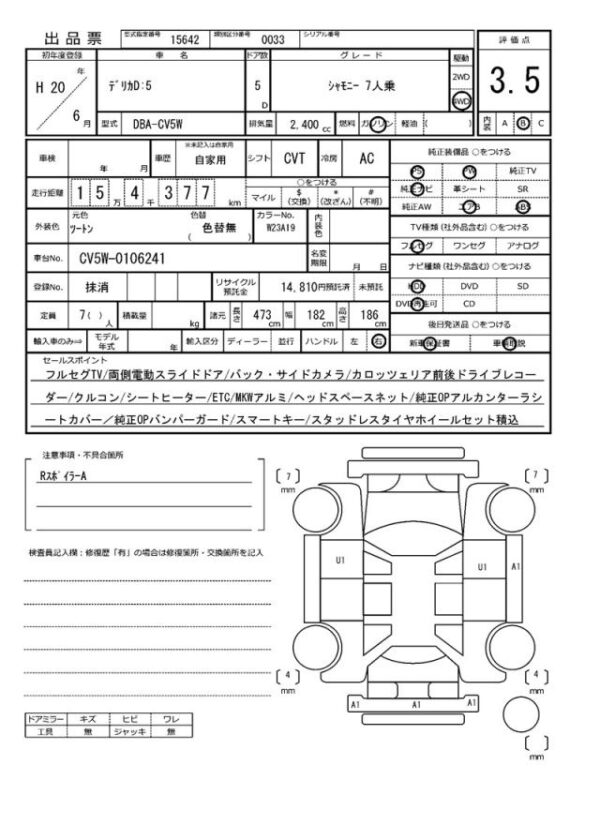 出品票 型式指定番号 15642 類別区分番号 0033 シリアル番号
評価点
3.5
内装 A B C
初年度登録 車名 ドア数 グレード 駆動
H 20 年 6 月 デリカD:5 5 D ｼｬﾓﾆｰ 7人乗 2WD 4WD
型式 DBA-CV5W 排気量 2,400 cc 燃料 ガソリン 軽油 ( )
車検 年 月 車歴 ※未記入は自家用 自家用 シフト CVT 冷房 AC
走行距離 1 5 万 4 千 3 7 7 km ○をつける マイル $ (交換) * (改ざん) # (不明)
外装色 元色 ﾂｰﾄﾝ 色替 ( 色替無 ) カラーNo. W23A19 内装色
車台No. CV5W-0106241 名変期限 月 日
登録No. 抹消 リサイクル預託金 14,810円預託済 未預託
定員 7( ) 人 積載量 kg 諸元 長さ 473 cm 幅 182 cm 高さ 186 cm
輸入車のみ⇒ モデル年式 年 輸入区分 ディーラー 並行 ハンドル 左 右
純正装備品 ○をつける
PS PW 純正TV
純正ナビ 革シート SR
純正AW エアB ABS
TV種類(社外品含む) ○をつける
フルセグ ワンセグ アナログ
ナビ種類(社外品含む)○をつける
HDD DVD SD
DVD再生可 CD
後日発送品 ○をつける
新車保証書 車輌取説
セールスポイント
フルセグTV/両側電動スライドドア/バック・サイドカメラ/カロッツェリア前後ドライブレコー
ダー/クルコン/シートヒーター/ETC/MKWアルミ/ヘッドスペースネット/純正OPアルカンターラシ
ートカバー／純正OPバンパーガード/スマートキー/スタッドレスタイヤホイールセット積込
注意事項・不具合箇所
RｽﾎﾟｲﾗｰA
検査員記入欄：修復歴「有」の場合は修復箇所・交換箇所を記入
ドアミラー キズ ヒビ ワレ
工具 無 ジャッキ 無
( 7 ) mm
( 7 ) mm
U1 U1 A1
( 4 ) mm
( 4 ) mm
A1 A1 A1
( ) mm